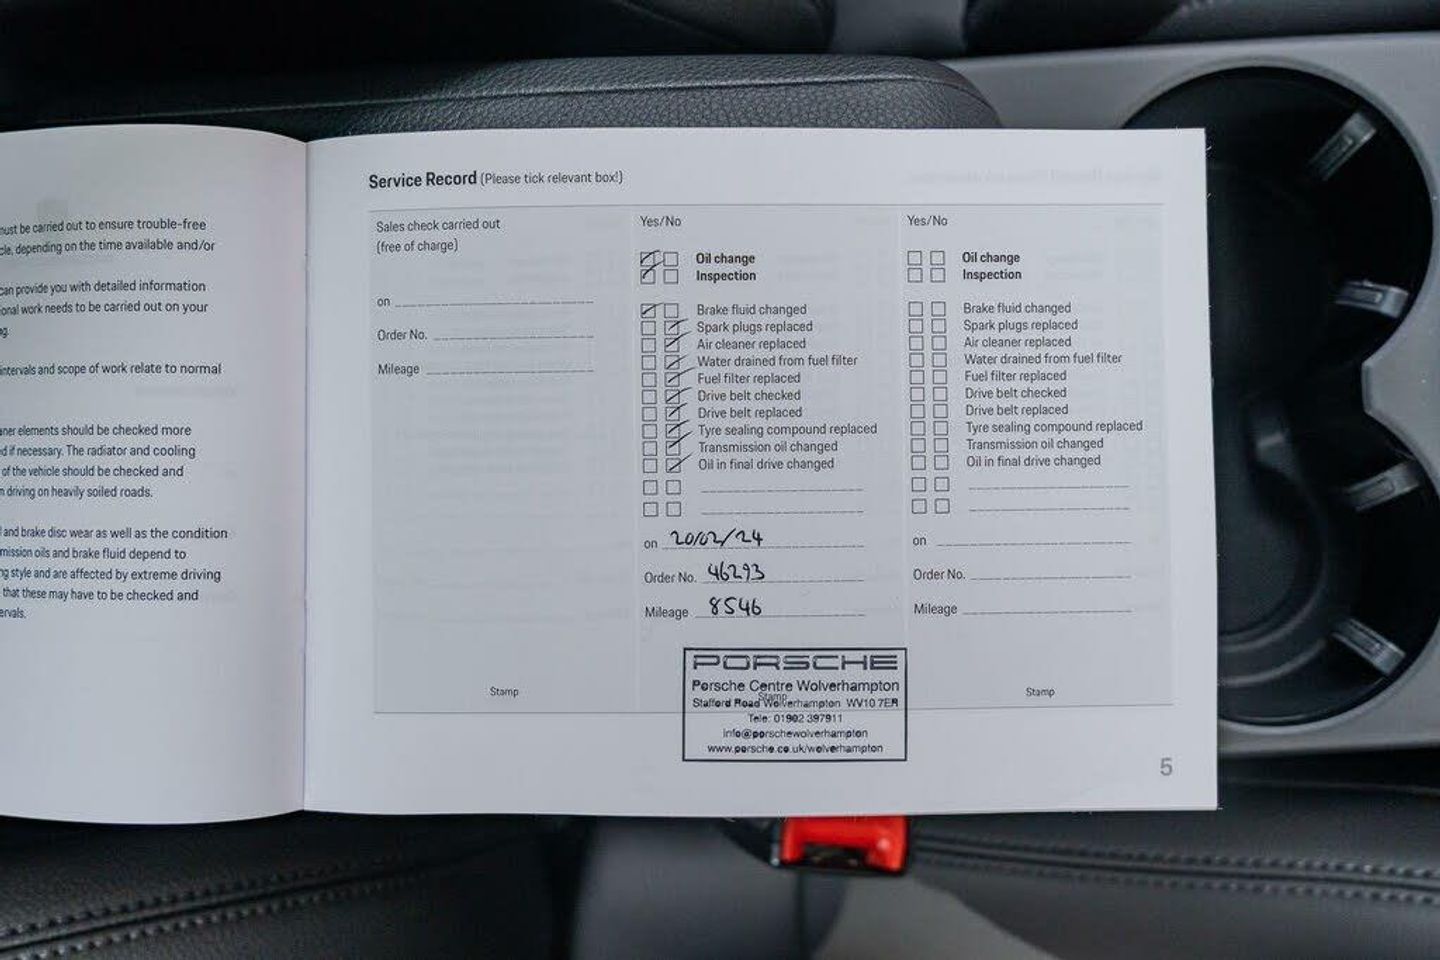 must be carried out to ensure trouble-free
cle, depending on the time available and/or
can provide you with detailed information
onal work needs to be carried out on your
ng.
intervals and scope of work relate to normal
aner elements should be checked more
d if necessary. The radiator and cooling
of the vehicle should be checked and
n driving on heavily soiled roads.
l and brake disc wear as well as the condition
mission oils and brake fluid depend to
ng style and are affected by extreme driving
that these may have to be checked and
ervals.
Service Record (Please tick relevant box!)
Sales check carried out
(free of charge)
on
Order No.
Mileage
Stamp
Yes/No
Oil change
Inspection
Brake fluid changed
Spark plugs replaced
Air cleaner replaced
Water drained from fuel filter
Fuel filter replaced
Drive belt checked
Drive belt replaced
Tyre sealing compound replaced
Transmission oil changed
Oil in final drive changed
on 20/02/24
Order No. 46293
Mileage 8546
PORSCHE
Porsche Centre Wolverhampton
Stamp
Stafford Road Wolverhampton WV10 7ER
Tele: 01902 397911
info@porschewolverhampton
www.porsche.co.uk/wolverhampton
Yes/No
Oil change
Inspection
Brake fluid changed
Spark plugs replaced
Air cleaner replaced
Water drained from fuel filter
Fuel filter replaced
Drive belt checked
Drive belt replaced
Tyre sealing compound replaced
Transmission oil changed
Oil in final drive changed
on
Order No.
Mileage
Stamp
5